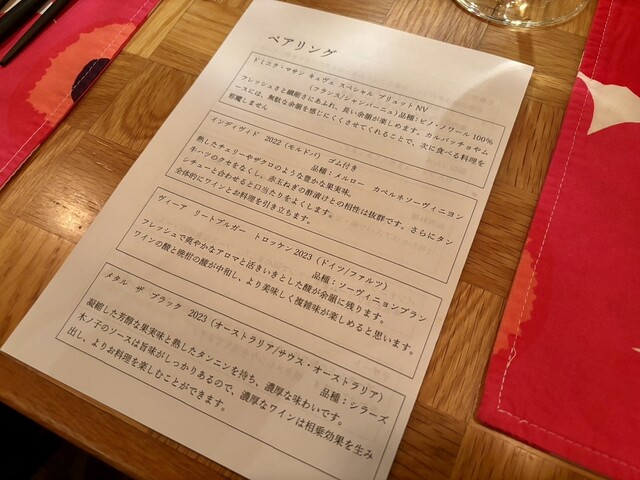 ペアリング
ドミニク・マサン キュヴェ スペシャル ブリュット NV
(フランス/シャンパーニュ) 品種：ピノ・ノワール 100%
フレッシュさと繊細さにあふれ、長い余韻が楽しめます。カルパッチョやム
ースには、無駄な余韻を感じにくくさせてくれることで、次に食べる料理を
邪魔しません
インディヴィド 2022 (モルドバ) ゴム付き
品種：メルロー カベルネソーヴィニヨン
熟したチェリーやザクロのような豊かな果実味。
牛ハツのクセをなくし、赤玉ねぎの酢漬けとの相性は抜群です。さらにタン
シチューと合わせると口当たりをよくします。
全体的にワインとお料理を引き立ちます。
ヴィーア リートブルガー トロッケン 2023 (ドイツ/ファルツ)
品種：ソーヴィニョンブラン
フレッシュで爽やかなアロマと活きいきとした酸が余韻に残ります。
ワインの酸と晩柑の酸が中和し、より美味しく複雑味が楽しめると思います。
メタル ザ ブラック 2023 (オーストラリア/サウス・オーストラリア)
品種：シラーズ
凝縮した芳醇な果実味と熟したタンニンを持ち、濃厚な味わいです。
木ノ子のソースは旨味がしっかりあるので、濃厚なワインは相乗効果を生み
出し、よりお料理を楽しむことができます。